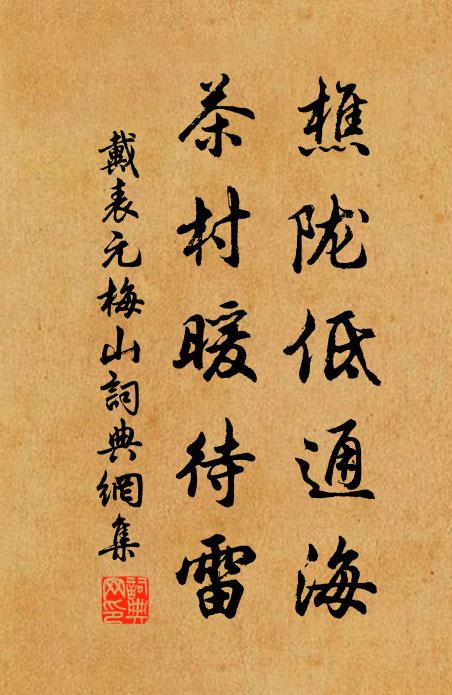 樵陇低通海
茶村暖待雷
戴表元梅山詞典網集
詞典网印